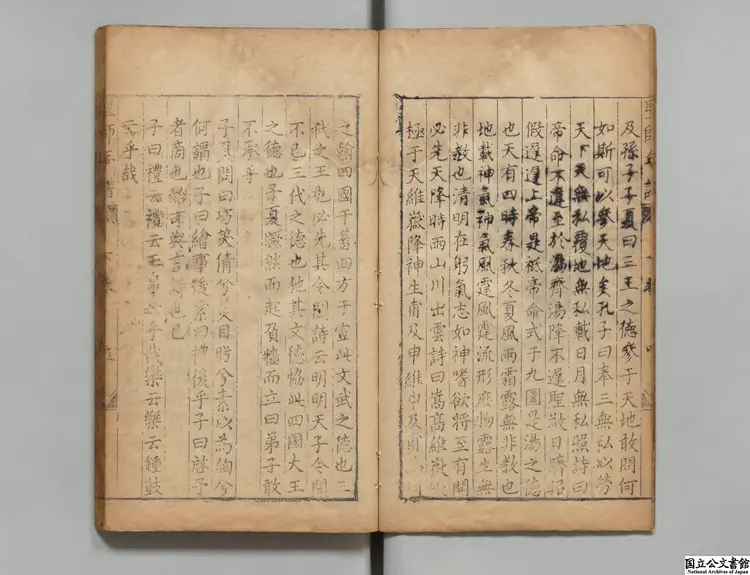 及孫子子夏曰三王之德參于天地敢問何
如斯可以參天地矣孔子曰奉三無私以勞
天下天無私覆地無私載日月無私照詩曰
帝命不違至於湯齊湯降不遲聖敬日躋昭
假遲遲上帝是祗帝命式于九圍是湯之德
也天有四時春秋冬夏風雨霜露無非教也
地載神氣神氣風霆風霆流形庶物露生無
非教也清明在躬氣志如神嗜欲將至有開
必先天降時雨山川出雲詩曰嵩高維嶽峻
極于天維嶽降神生甫及申維申及甫
之翰四國于蕃四方于宣此文武之德也三
代之王也必先其令聞詩云明明天子令聞
不已三代之德也弛其文德協此四國大王
之德也子夏蹶然而起負牆而立曰弟子敢
不承乎
子夏問曰巧笑倩兮美目盼兮素以為絢兮
何謂也子曰繪事後素曰禮後乎子曰啓予
者商也始可與言詩也已
子曰禮云禮云玉帛云乎哉樂云樂云鐘鼓
云乎哉
国立公文書館
National Archives of Japan